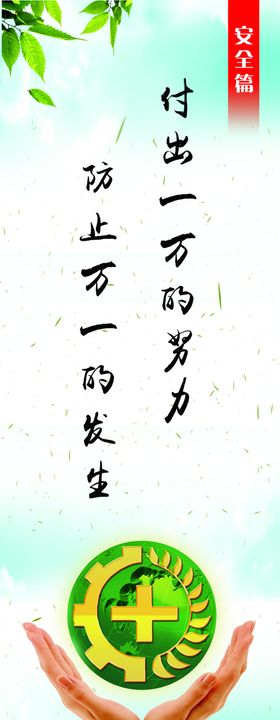 安全篇
付出一万的努力
防止万一的发生